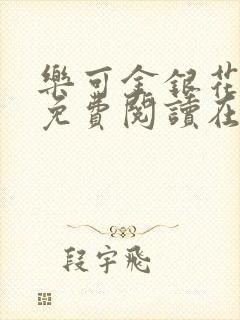 樂可金銀花
免費閱讀在
段宇飛